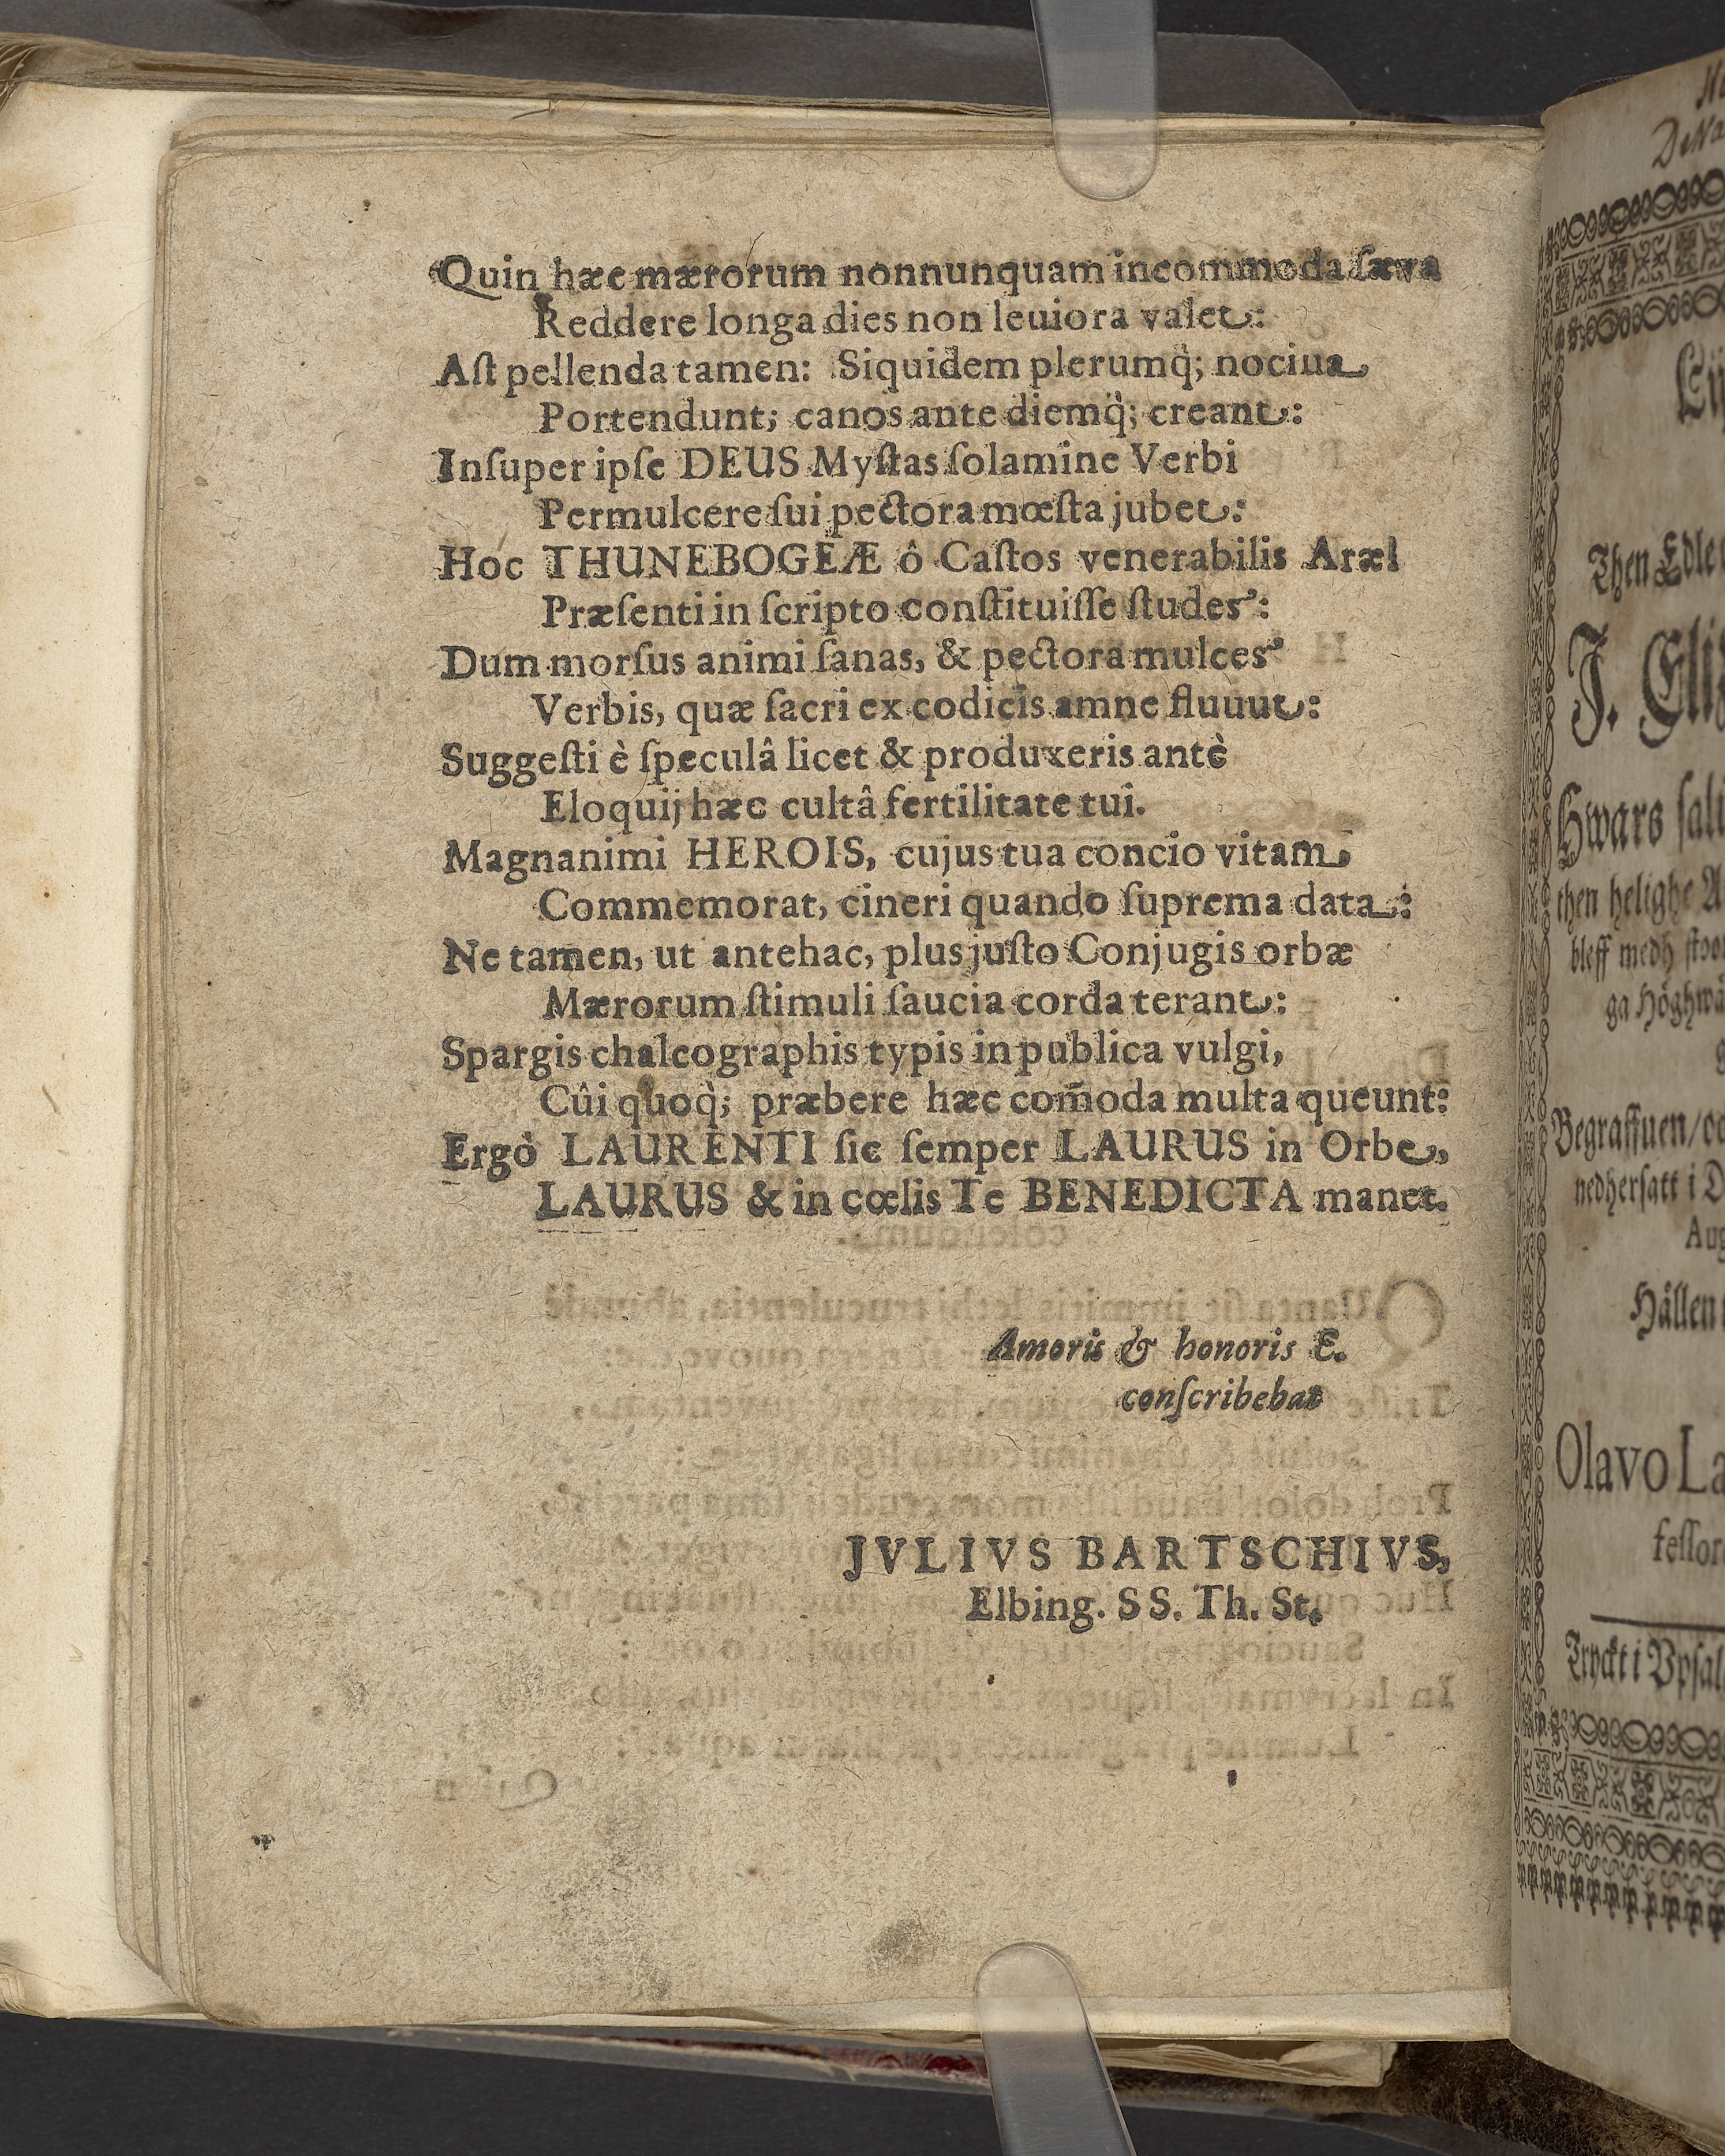 Quin hæc mærorum nonnunquam incommoda ſæva
Reddere longa dies non leuiora valet:
Aſt pellenda tamen: Siquidem plerumq̀; nociua
Portendunt; canos ante diemq̀; creant:
Inſuper ipſe DEUS Myſtas ſolamine Verbi
Permulcere ſui pectora mœſta jubet:
Hoc THUNEBOGEÆ ô Caſtos venerabilis Aræl
Præſenti in ſcripto conſtituiſſe ſtudes:
Dum morſus animi ſanas, & pectora mulces
Verbis, quæ ſacri ex codicis amne fluuut:
Suggeſti è ſpeculâ licet & produxeris antè
Eloquij hæc cultâ fertilitate tui.
Magnanimi HEROIS, cujus tua concio vitam
Commemorat, cineri quando ſuprema data:
Ne tamen, ut antehac, plus juſto Conjugis orbæ
Mærorum ſtimuli ſaucia corda terant:
Spargis chalcographis typis in publica vulgi,
Cûi quoq̀; præbere hæc com̃oda multa queunt:
Ergò LAURENTI ſic ſemper LAURUS in Orbe,
LAURUS & in cœlis Te BENEDICTA manet.
Amoris & honoris E.
conſcribebat
JVLIVS BARTSCHIVS,
Elbing. SS. Th. St.
Then Edle
J. Eli
Hwars
then helighe
bleff medh
ga
Begraffuen/
nedherſatt i
Aug
Hållen
Olavo La
feſſor
Tryckt i Vpſal